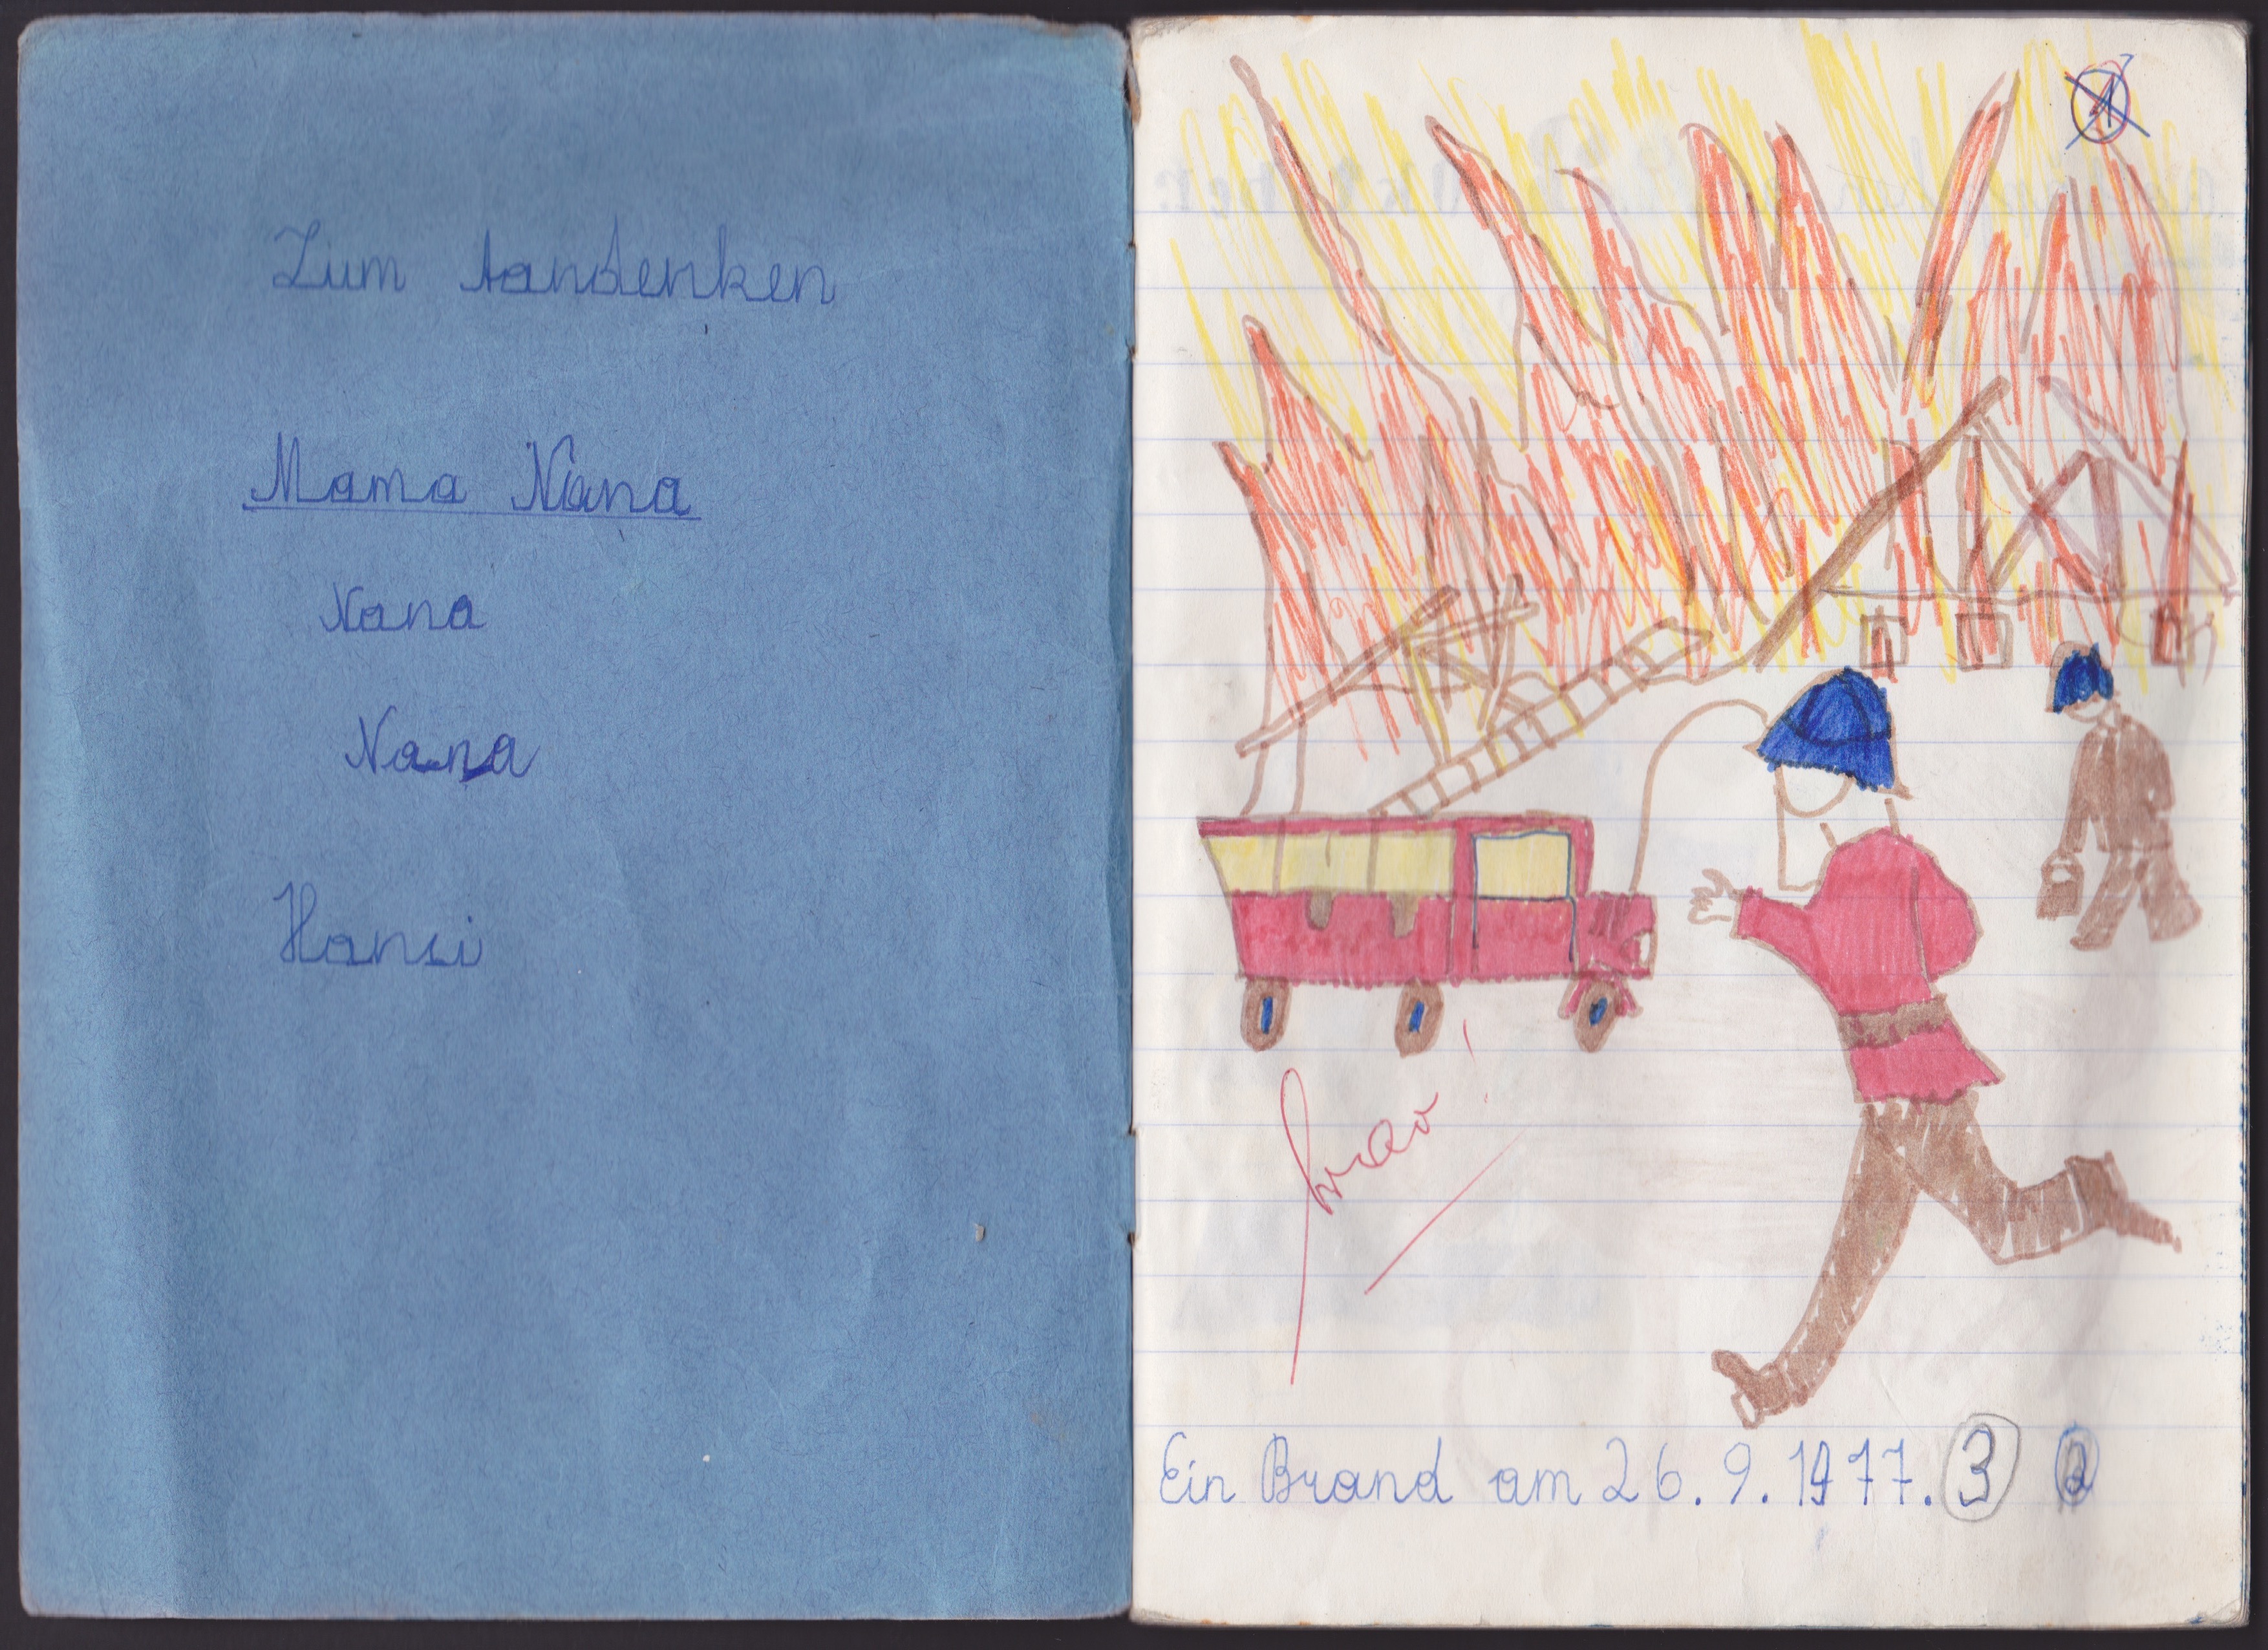 Zum Aandenken
Mama Nana
Nana
Nana
Hansi
1
brav!
Ein Brand am 26.9.1977. 3 2